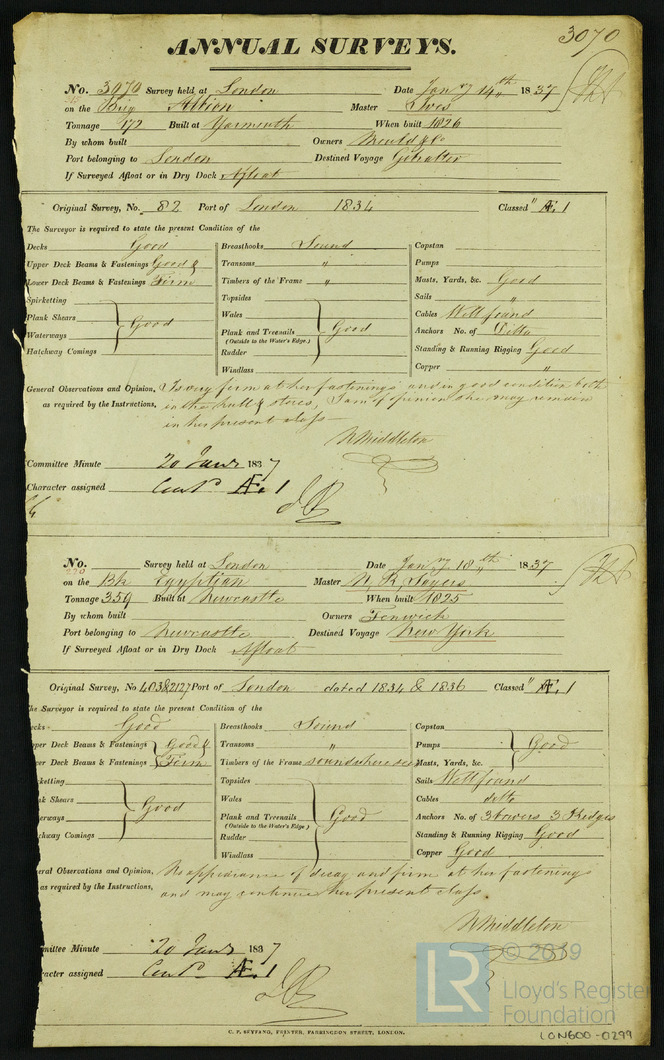 3070
ANNUAL SURVEYS.
No. 3070 Survey held at London Date Jany 14th 1837
on the Brig Albion Master Ives
Tonnage 172 Built at Yarmouth When built 1826
By whom built Owners Mould & Co
Port belonging to London Destined Voyage Gibralter
If Surveyed Afloat or in Dry Dock Afloat
Original Survey, No. 82 Port of London 1834 Classed "Æ 1
The Surveyor is required to state the present Condition of the
Decks Good Breasthooks Sound Capstan
Upper Deck Beams & Fastenings Good & Transoms " Pumps
Lower Deck Beams & Fastenings Firm Timbers of the Frame " Masts, Yards, &c. Good
Spirketting Topsides Sails "
Plank Shears Good Wales Cables Well found
Waterways Plank and Treenails Good Anchors No. of Ditto
(Outside to the Water's Edge.)
Hatchway Comings Rudder Standing & Running Rigging Good
Windlass Copper "
General Observations and Opinion, Is very firm at her fastenings and in good condition both
as required by the Instructions, in the hull & stores, I am of opinion she may remain
in her present class
W Middleton
Committee Minute 20 Jany 1837
Character assigned Contd Æ 1
No. Survey held at London Date Jany 18th 1837
on the Bk Egyptian Master N. R. Sayers
Tonnage 359 Built at Newcastle When built 1825
By whom built Owners Fenwick
Port belonging to Newcastle Destined Voyage New York
If Surveyed Afloat or in Dry Dock Afloat
Original Survey, No 403&2127 Port of London dated 1834 & 1836 Classed "Æ 1
The Surveyor is required to state the present Condition of the
ecks Good Breasthooks Sound Capstan
per Deck Beams & Fastenings Good & Transoms " Pumps Good
wer Deck Beams & Fastenings Firm Timbers of the Frame sound where seen Masts, Yards, &c.
rketting Topsides Sails Well found
k Shears Good Wales Cables ditto
erways Plank and Treenails Good Anchors No. of 3 bowers 3 Kedges
(Outside to the Water's Edge.)
chway Comings Rudder Standing & Running Rigging Good
Windlass Copper Good
eral Observations and Opinion, No appearance of decay and firm at her fastenings
as required by the Instructions, and may continue her present class
W Middleton
mittee Minute 20 Jany 1837
racter assigned Contd Æ 1
C. F. SEYFANG, PRINTER, FARRINGDON STREET, LONDON.
LR © 2019
Lloyd's Register
Foundation
LON600-0299